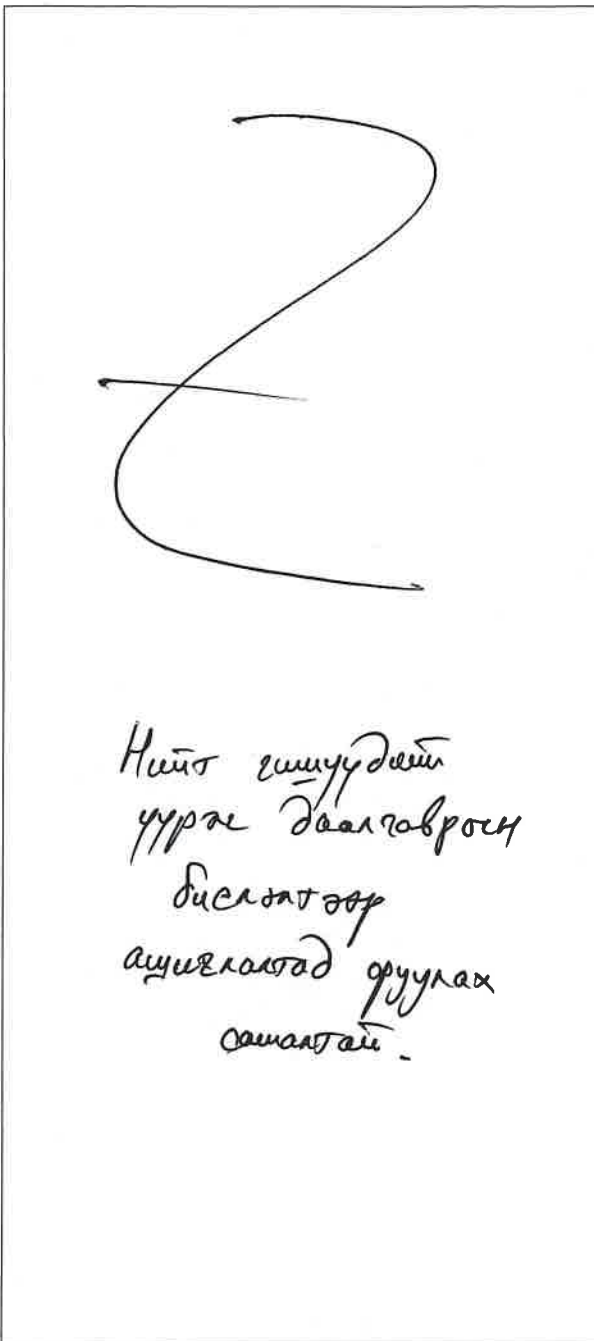 Нийт гишүүдийн
үүрэг даалгаврын
биелэлтээр
ашиглалтад оруулах
саналтай.